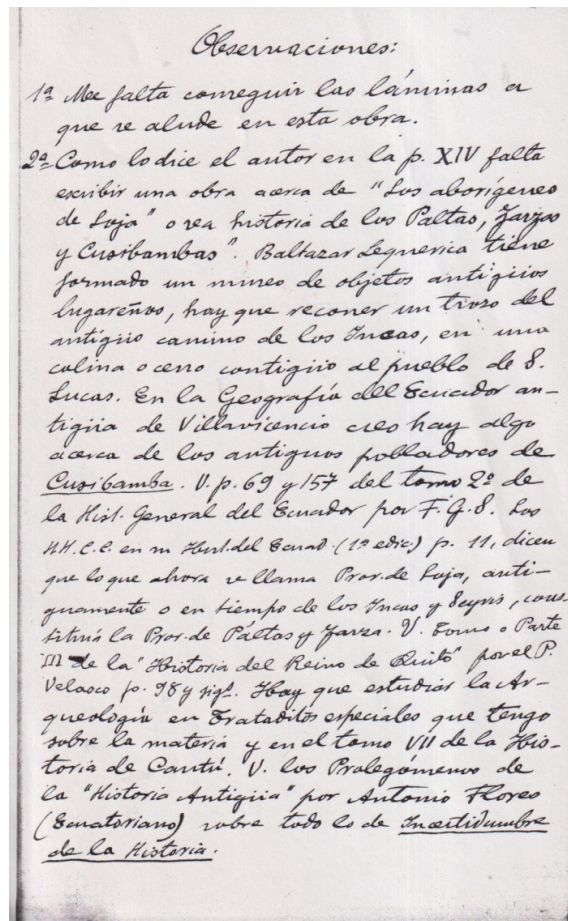 Observaciones:
1ª Me falta conseguir las láminas a
que se alude en esta obra.
2ª Como lo dice el autor en la p. XIV falta
escribir una obra acerca de "Los aborígenes
de Loja" o sea historia de los Paltas, Zarzas
y Cusibambas". Baltazar Lequerica tiene
formado un museo de objetos antigüos
lugareños, hay que recorrer un trozo del
antígüo camino de los Incas, en una
colina o cerro contigüo al pueblo de S.
Lucas. En la Geografía del Ecuador an-
tigüa de Villavicencio creo hay algo
acerca de los antiguos pobladores de
Cusibamba. V. p. 69 y 157 del tomo 2º de
la Hist. General del Ecuador por F. G. S. Los
H.H. C.C. en su Hist. del Ecuad. (1ª edic.) p. 11, dicen
que lo que ahora se llama Prov. de Loja, anti-
guamente o en tiempo de los Incas y Scyris, cons-
tituía la Prov. de Páltas y Zarza. V. Tomo o Parte
III de la "Historia del Reino de Quito" por el P.
Velasco p. 98 y sigs. Hay que estudiar la Ar-
queología en Trataditos especiales que tengo
sobre la materia y en el tomo VII de la His-
toria de Cantú. V. los Prolegómenos de
la "Historia Antigüa" por Antonio Flores
(Ecuatoriano) sobre todo lo de Incertidumbre
de la Historia.